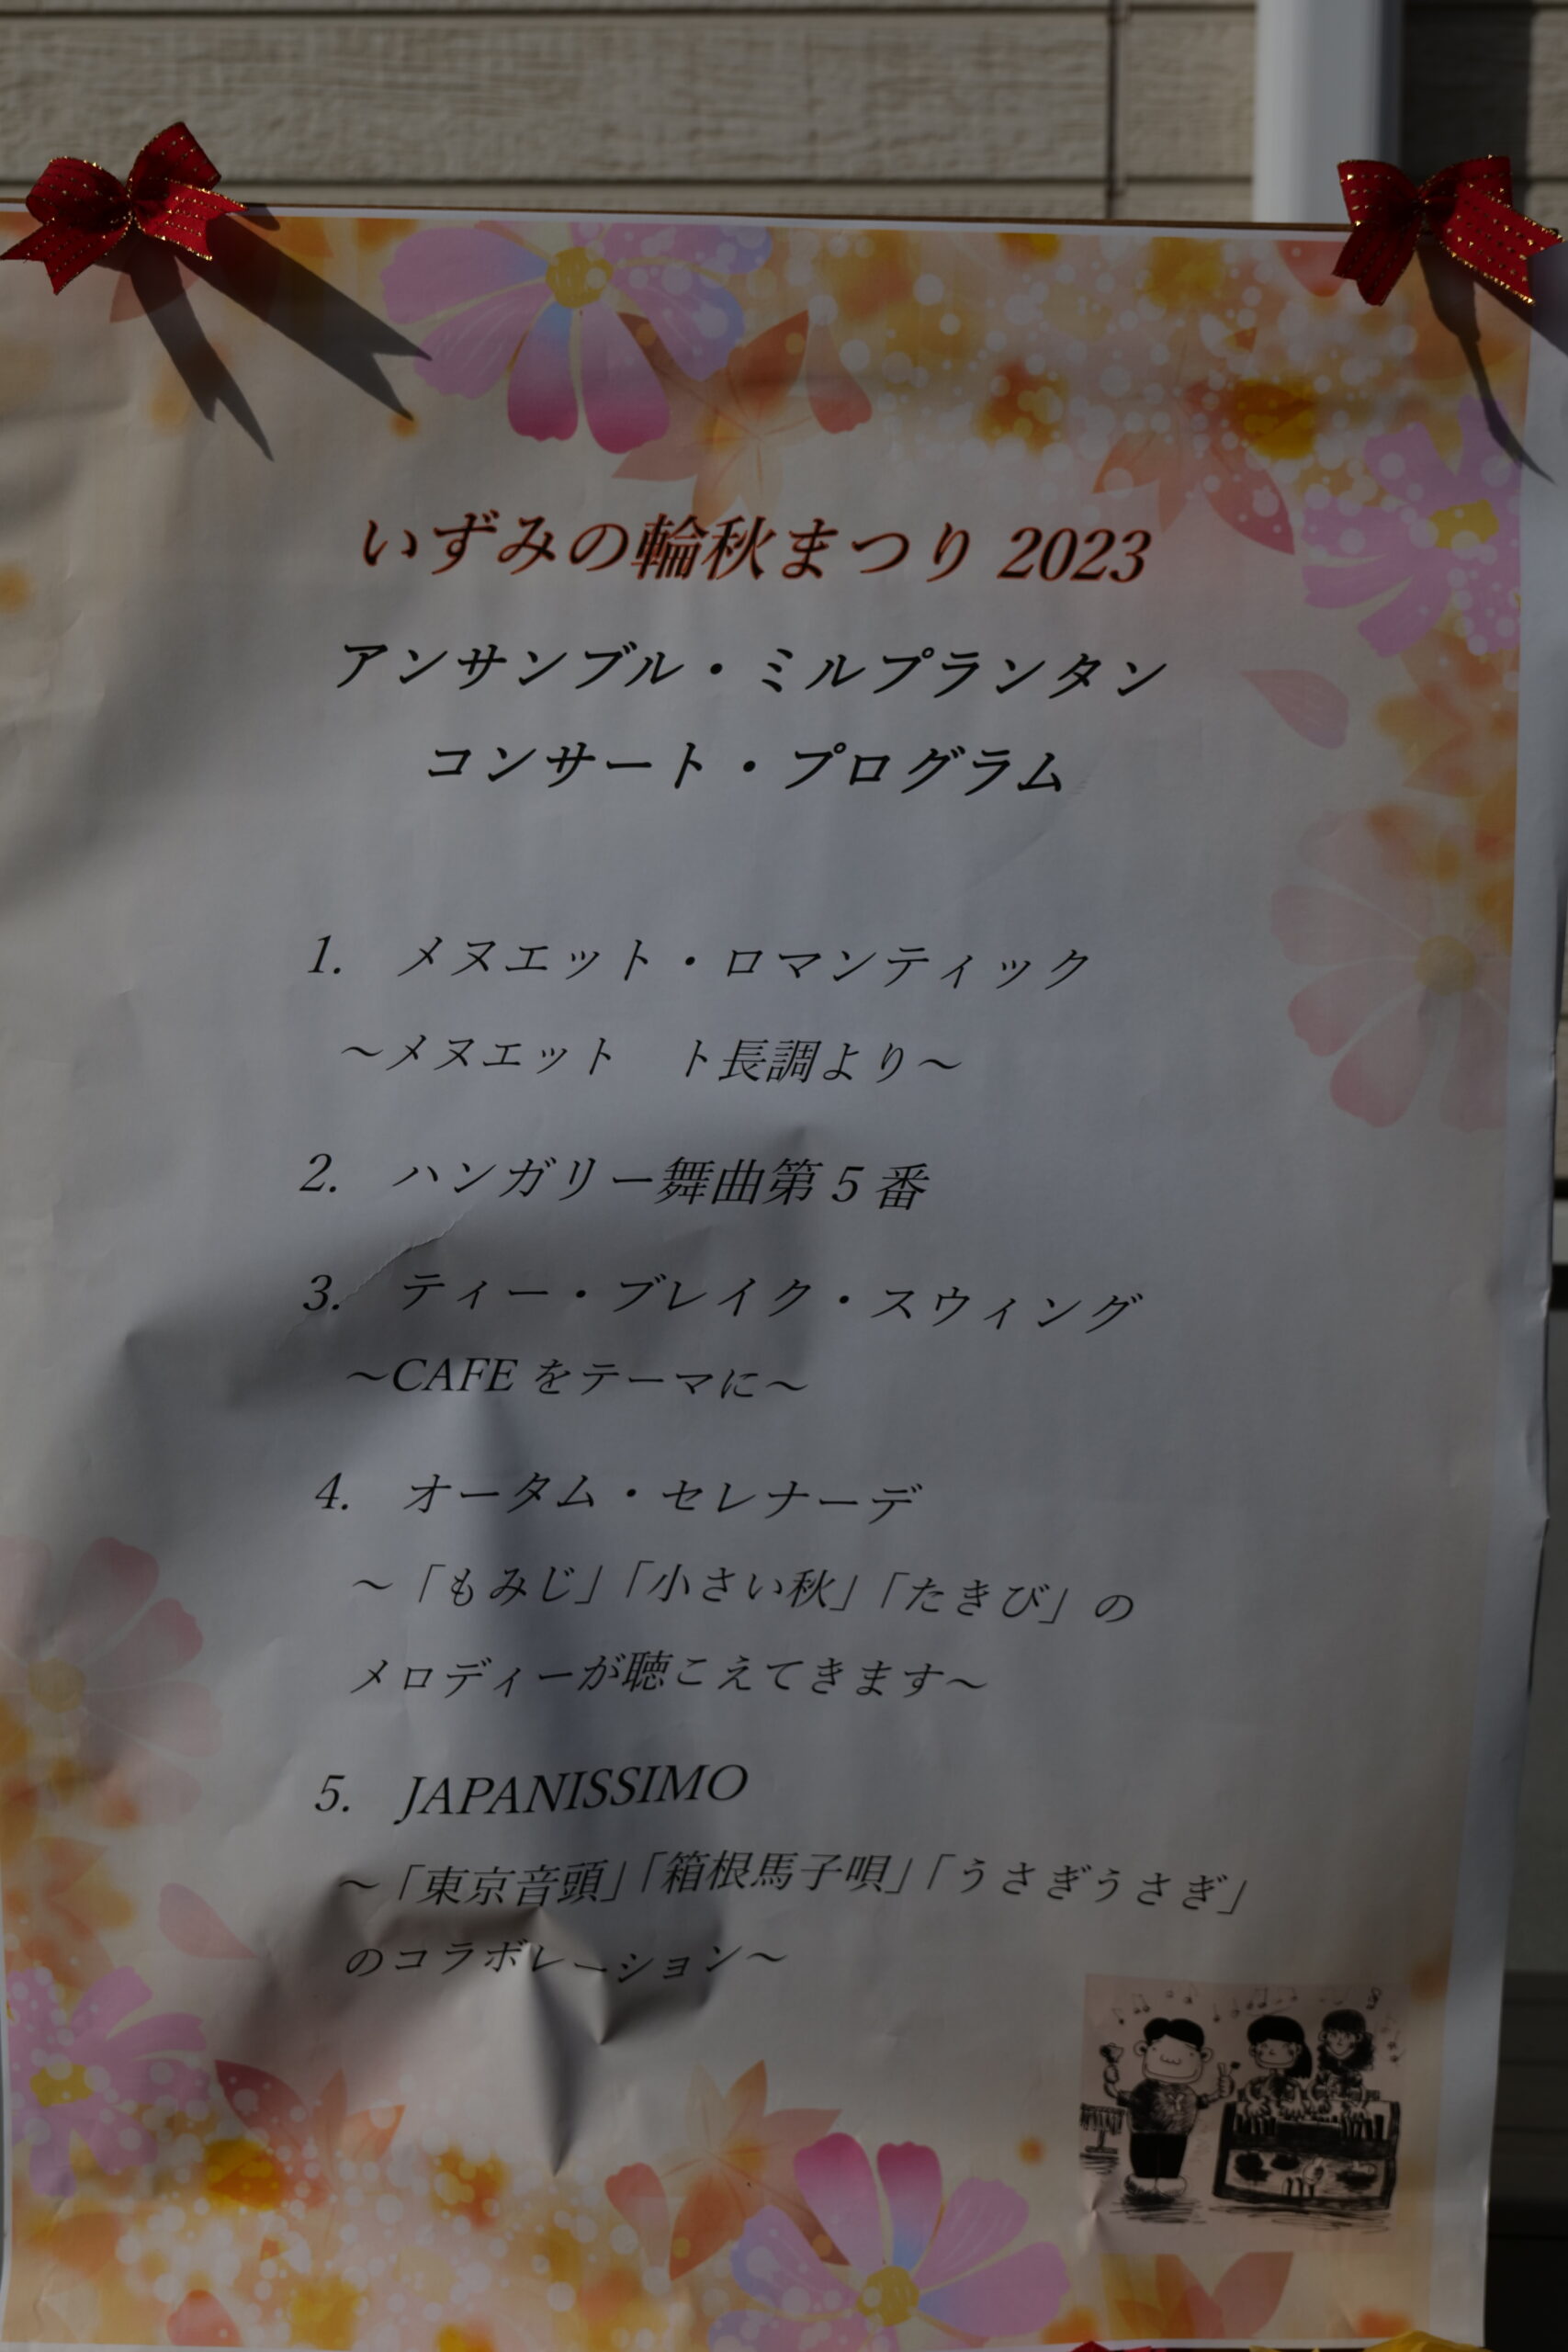 いずみの輪秋まつり 2023
アンサンブル・ミルプランタン
コンサート・プログラム
1. メヌエット・ロマンティック
～メヌエット　ト長調より～
2. ハンガリー舞曲第 5 番
3. ティー・ブレイク・スウィング
～CAFE をテーマに～
4. オータム・セレナーデ
～「もみじ」「小さい秋」「たきび」の
メロディーが聴こえてきます～
5. JAPANISSIMO
～「東京音頭」「箱根馬子唄」「うさぎうさぎ」
のコラボレーション～